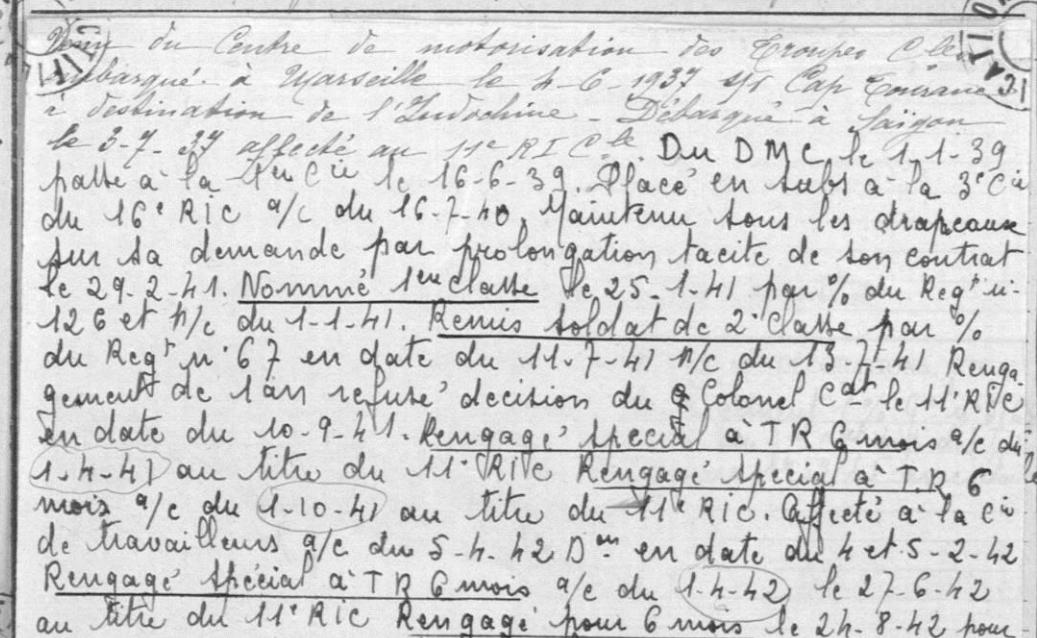 Venu du Centre de motorisation des Troupes Cles
Embarqué à Marseille le 4-6-1937 s/s Cap Tourane
à destination de l'Indochine - Débarqué à Saïgon
le 3-7-37 affecté au 11e RI Cle. Du DMC le 1-1-39
passé à la Cie le 16-6-39. Placé en subs à la 3e Cie
du 16e RIC a/c du 16-7-40. Maintenu sous les drapeaux
sur sa demande par prolongation tacite de son contrat
le 29-2-41. Nommé 1ere classe le 25-1-41 par % du Regt n°
126 et p/c du 1-1-41. Remis soldat de 2e classe par %
du Regt n° 67 en date du 11-7-41 p/c du 13-7-41 Renga-
gement de 1 an refusé décision du Colonel Cdt le 11e RIC
en date du 10-9-41. Rengagé spécial à TR 6 mois a/c du
1-4-41 au titre du 11e RIC Rengagé spécial à T.R 6
mois a/c du 1-10-41 au titre du 11e RIC. Affecté à la Cie
de travailleurs a/c du 5-4-42 Don en date du 4 et 5-2-42
Rengagé spécial à TR 6 mois a/c du 1-4-42 le 27-6-42
au titre du 11e RIC Rengagé pour 6 mois le 24-8-42 pour